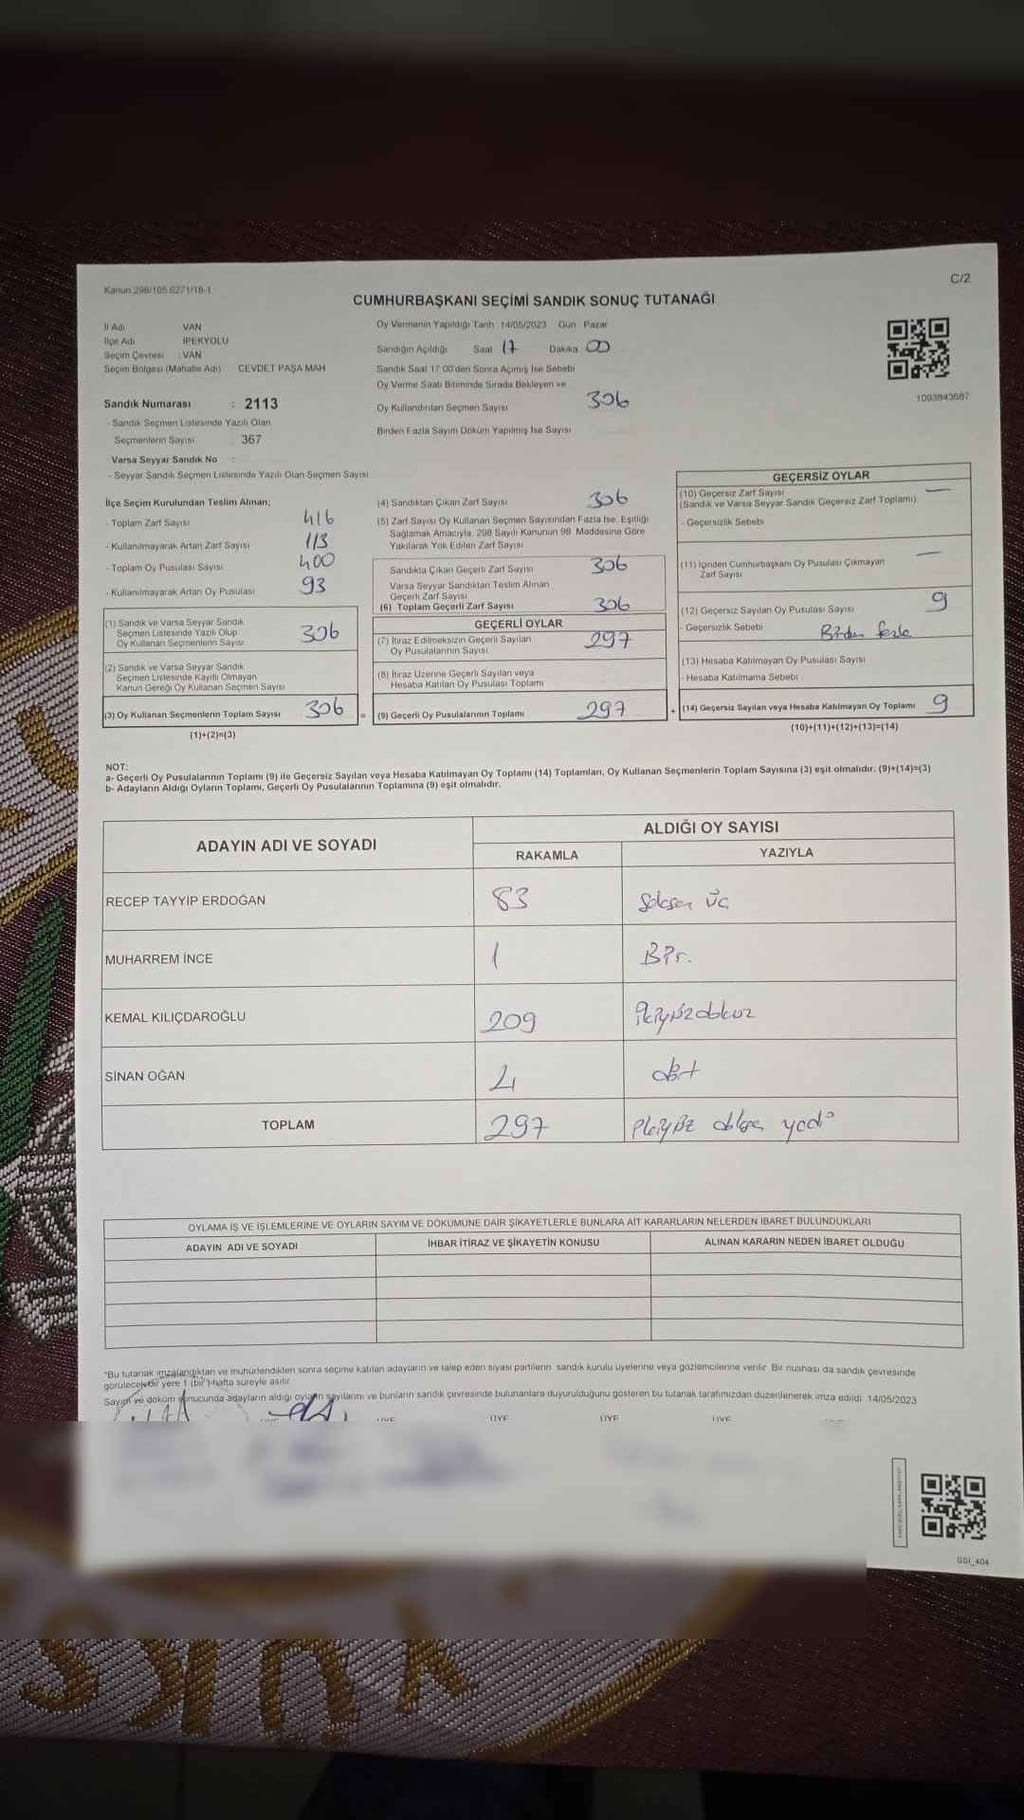 Kanun:298/105 6271/18-1
C/2
CUMHURBAŞKANI SEÇİMİ SANDIK SONUÇ TUTANAĞI
İl Adı VAN
İlçe Adı İPEKYOLU
Seçim Çevresi : VAN
Seçim Bölgesi (Mahalle Adı) CEVDET PAŞA MAH
Sandık Numarası : 2113
- Sandık Seçmen Listesinde Yazılı Olan
Seçmenlerin Sayısı 367
Varsa Seyyar Sandık No :
- Seyyar Sandık Seçmen Listesinde Yazılı Olan Seçmen Sayısı
Oy Vermenin Yapıldığı Tarih 14/05/2023 Gün Pazar
Sandığın Açıldığı Saat 17 Dakika 00
Sandık Saat 17:00'den Sonra Açılmış İse Sebebi
Oy Verme Saati Bitiminde Sırada Bekleyen ve
Oy Kullandırılan Seçmen Sayısı 306
Birden Fazla Sayım Döküm Yapılmış İse Sayısı
1003843687
İlçe Seçim Kurulundan Teslim Alınan;
- Toplam Zarf Sayısı 416
- Kullanılmayarak Artan Zarf Sayısı 113
- Toplam Oy Pusulası Sayısı 400
- Kullanılmayarak Artan Oy Pusulası 93
(1) Sandık ve Varsa Seyyar Sandık
Seçmen Listesinde Yazılı Olup
Oy Kullanan Seçmenlerin Sayısı 306
(2) Sandık ve Varsa Seyyar Sandık
Seçmen Listesinde Kayıtlı Olmayan
Kanun Gereği Oy Kullanan Seçmen Sayısı
(3) Oy Kullanan Seçmenlerin Toplam Sayısı 306
(1)+(2)=(3)
(4) Sandıktan Çıkan Zarf Sayısı 306
(5) Zarf Sayısı Oy Kullanan Seçmen Sayısından Fazla İse, Eşitliği
Sağlamak Amacıyla, 298 Sayılı Kanunun 98. Maddesine Göre
Yakılarak Yok Edilen Zarf Sayısı
Sandıkta Çıkan Geçerli Zarf Sayısı 306
Varsa Seyyar Sandıktan Teslim Alınan
Geçerli Zarf Sayısı
(6) Toplam Geçerli Zarf Sayısı 306
GEÇERLİ OYLAR
(7) İtiraz Edilmeksizin Geçerli Sayılan
Oy Pusulalarının Sayısı 297
(8) İtiraz Üzerine Geçerli Sayılan veya
Hesaba Katılan Oy Pusulası Toplamı
= (9) Geçerli Oy Pusulalarının Toplamı 297
GEÇERSİZ OYLAR
(10) Geçersiz Zarf Sayısı —
(Sandık ve Varsa Seyyar Sandık Geçersiz Zarf Toplamı)
- Geçersizlik Sebebi
(11) İçinden Cumhurbaşkanı Oy Pusulası Çıkmayan —
Zarf Sayısı
(12) Geçersiz Sayılan Oy Pusulası Sayısı 9
- Geçersizlik Sebebi Birden fazla
(13) Hesaba Katılmayan Oy Pusulası Sayısı
- Hesaba Katılmama Sebebi
+ (14) Geçersiz Sayılan veya Hesaba Katılmayan Oy Toplamı 9
(10)+(11)+(12)+(13)=(14)
NOT:
a- Geçerli Oy Pusulalarının Toplamı (9) ile Geçersiz Sayılan veya Hesaba Katılmayan Oy Toplamı (14) Toplamları, Oy Kullanan Seçmenlerin Toplam Sayısına (3) eşit olmalıdır. (9)+(14)=(3)
b- Adayların Aldığı Oyların Toplamı, Geçerli Oy Pusulalarının Toplamına (9) eşit olmalıdır.
ADAYIN ADI VE SOYADI
ALDIĞI OY SAYISI
RAKAMLA YAZIYLA
RECEP TAYYİP ERDOĞAN 83 Seksen üç
MUHARREM İNCE 1 Bir.
KEMAL KILIÇDAROĞLU 209 ikiyüzdokuz
SİNAN OĞAN 4 dört
TOPLAM 297 ikiyüz doksan yedi
OYLAMA İŞ VE İŞLEMLERİNE VE OYLARIN SAYIM VE DÖKÜMÜNE DAİR ŞİKAYETLERLE BUNLARA AİT KARARLARIN NELERDEN İBARET BULUNDUKLARI
ADAYIN ADI VE SOYADI İHBAR İTİRAZ VE ŞİKAYETİN KONUSU ALINAN KARARIN NEDEN İBARET OLDUĞU
*Bu tutanak imzalandıktan ve mühürlendikten sonra seçime katılan adayların ve talep eden siyasi partilerin sandık kurulu üyelerine veya gözlemcilerine verilir. Bir nüshası da sandık çevresinde
görülecek bir yere 1 (bir) hafta süreyle asılır.
Sayım ve döküm sonucunda adayların aldığı oyların sayılarını ve bunların sandık çevresinde bulunanlara duyurulduğunu gösteren bu tutanak tarafımızdan düzenlenerek imza edildi. 14/05/2023
ÜYE ÜYE ÜYE ÜYE
GSI_404